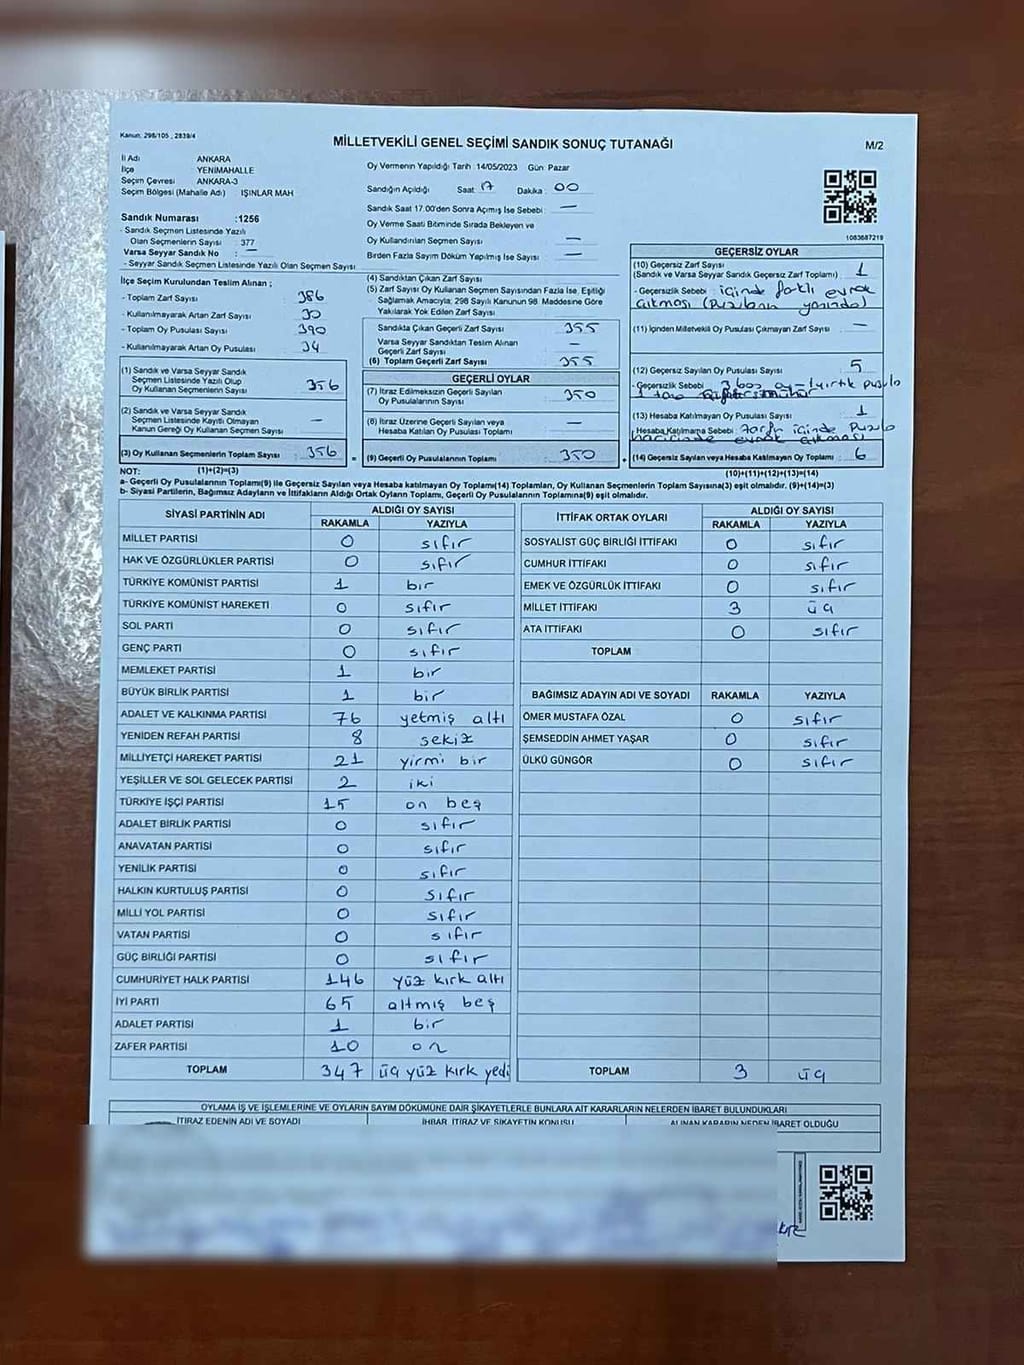 Kanun: 298/105 , 2839/4
MİLLETVEKİLİ GENEL SEÇİMİ SANDIK SONUÇ TUTANAĞI
M/2
İl Adı ANKARA
İlçe YENİMAHALLE
Seçim Çevresi ANKARA-3
Seçim Bölgesi (Mahalle Adı) IŞINLAR MAH
Sandık Numarası :1256
- Sandık Seçmen Listesinde Yazılı
Olan Seçmenlerin Sayısı : 377
Varsa Seyyar Sandık No : —
- Seyyar Sandık Seçmen Listesinde Yazılı Olan Seçmen Sayısı :
Oy Vermenin Yapıldığı Tarih :14/05/2023 Gün Pazar
Sandığın Açıldığı Saat 17 Dakika : 00
Sandık Saat 17.00'den Sonra Açılmış İse Sebebi : —
Oy Verme Saati Bitiminde Sırada Bekleyen ve
Oy Kullandırılan Seçmen Sayısı —
Birden Fazla Sayım Döküm Yapılmış İse Sayısı : —
1083687219
İlçe Seçim Kurulundan Teslim Alınan ;
- Toplam Zarf Sayısı : 386
- Kullanılmayarak Artan Zarf Sayısı : 30
- Toplam Oy Pusulası Sayısı : 390
- Kullanılmayarak Artan Oy Pusulası : 34
(1) Sandık ve Varsa Seyyar Sandık
Seçmen Listesinde Yazılı Olup
Oy Kullanan Seçmenlerin Sayısı : 356
(2) Sandık ve Varsa Seyyar Sandık
Seçmen Listesinde Kayıtlı Olmayan
Kanun Gereği Oy Kullanan Seçmen Sayısı : —
(3) Oy Kullanan Seçmenlerin Toplam Sayısı : 356
(4) Sandıktan Çıkan Zarf Sayısı
(5) Zarf Sayısı Oy Kullanan Seçmen Sayısından Fazla İse, Eşitliği
Sağlamak Amacıyla; 298 Sayılı Kanunun 98. Maddesine Göre
Yakılarak Yok Edilen Zarf Sayısı
Sandıkta Çıkan Geçerli Zarf Sayısı : 355
Varsa Seyyar Sandıktan Teslim Alınan
Geçerli Zarf Sayısı : —
(6) Toplam Geçerli Zarf Sayısı : 355
GEÇERLİ OYLAR
(7) İtiraz Edilmeksizin Geçerli Sayılan
Oy Pusulalarının Sayısı : 350
(8) İtiraz Üzerine Geçerli Sayılan veya
Hesaba Katılan Oy Pusulası Toplamı : —
= (9) Geçerli Oy Pusulalarının Toplamı : 350 +
GEÇERSİZ OYLAR
(10) Geçersiz Zarf Sayısı
(Sandık ve Varsa Seyyar Sandık Geçersiz Zarf Toplamı) : 1
- Geçersizlik Sebebi : içinde farklı evrak
çıkması (Pusulanın yanında)
(11) İçinden Milletvekili Oy Pusulası Çıkmayan Zarf Sayısı : —
(12) Geçersiz Sayılan Oy Pusulası Sayısı : 5
- Geçersizlik Sebebi : 3 boş oy - 1 yırtık pusula
1 tane
(13) Hesaba Katılmayan Oy Pusulası Sayısı : 1
Hesaba Katılmama Sebebi : zarfın içinde Pusula
haricinde evrak çıkması
(14) Geçersiz Sayılan veya Hesaba Katılmayan Oy Toplamı : 6
NOT: (1)+(2)=(3) (10)+(11)+(12)+(13)=(14)
a- Geçerli Oy Pusulalarının Toplamı(9) ile Geçersiz Sayılan veya Hesaba katılmayan Oy Toplamı(14) Toplamları, Oy Kullanan Seçmenlerin Toplam Sayısına(3) eşit olmalıdır. (9)+(14)=(3)
b- Siyasi Partilerin, Bağımsız Adayların ve İttifakların Aldığı Ortak Oyların Toplamı, Geçerli Oy Pusulalarının Toplamına(9) eşit olmalıdır.
SİYASİ PARTİNİN ADI ALDIĞI OY SAYISI
RAKAMLA YAZIYLA
MİLLET PARTİSİ 0 sıfır
HAK VE ÖZGÜRLÜKLER PARTİSİ 0 sıfır
TÜRKİYE KOMÜNİST PARTİSİ 1 bir
TÜRKİYE KOMÜNİST HAREKETİ 0 sıfır
SOL PARTİ 0 sıfır
GENÇ PARTİ 0 sıfır
MEMLEKET PARTİSİ 1 bir
BÜYÜK BİRLİK PARTİSİ 1 bir
ADALET VE KALKINMA PARTİSİ 76 yetmiş altı
YENİDEN REFAH PARTİSİ 8 sekiz
MİLLİYETÇİ HAREKET PARTİSİ 21 yirmi bir
YEŞİLLER VE SOL GELECEK PARTİSİ 2 iki
TÜRKİYE İŞÇİ PARTİSİ 15 on beş
ADALET BİRLİK PARTİSİ 0 sıfır
ANAVATAN PARTİSİ 0 sıfır
YENİLİK PARTİSİ 0 sıfır
HALKIN KURTULUŞ PARTİSİ 0 sıfır
MİLLİ YOL PARTİSİ 0 sıfır
VATAN PARTİSİ 0 sıfır
GÜÇ BİRLİĞİ PARTİSİ 0 sıfır
CUMHURİYET HALK PARTİSİ 146 yüz kırk altı
İYİ PARTİ 65 altmış beş
ADALET PARTİSİ 1 bir
ZAFER PARTİSİ 10 on
TOPLAM 347 üç yüz kırk yedi
İTTİFAK ORTAK OYLARI ALDIĞI OY SAYISI
RAKAMLA YAZIYLA
SOSYALİST GÜÇ BİRLİĞİ İTTİFAKI 0 sıfır
CUMHUR İTTİFAKI 0 sıfır
EMEK VE ÖZGÜRLÜK İTTİFAKI 0 sıfır
MİLLET İTTİFAKI 3 üç
ATA İTTİFAKI 0 sıfır
TOPLAM
BAĞIMSIZ ADAYIN ADI VE SOYADI RAKAMLA YAZIYLA
ÖMER MUSTAFA ÖZAL 0 sıfır
ŞEMSEDDİN AHMET YAŞAR 0 sıfır
ÜLKÜ GÜNGÖR 0 sıfır
TOPLAM 3 üç
OYLAMA İŞ VE İŞLEMLERİNE VE OYLARIN SAYIM DÖKÜMÜNE DAİR ŞİKAYETLERLE BUNLARA AİT KARARLARIN NELERDEN İBARET BULUNDUKLARI
İTİRAZ EDENİN ADI VE SOYADI İHBAR, İTİRAZ VE ŞİKAYETİN KONUSU ALINAN KARARIN NEDEN İBARET OLDUĞU